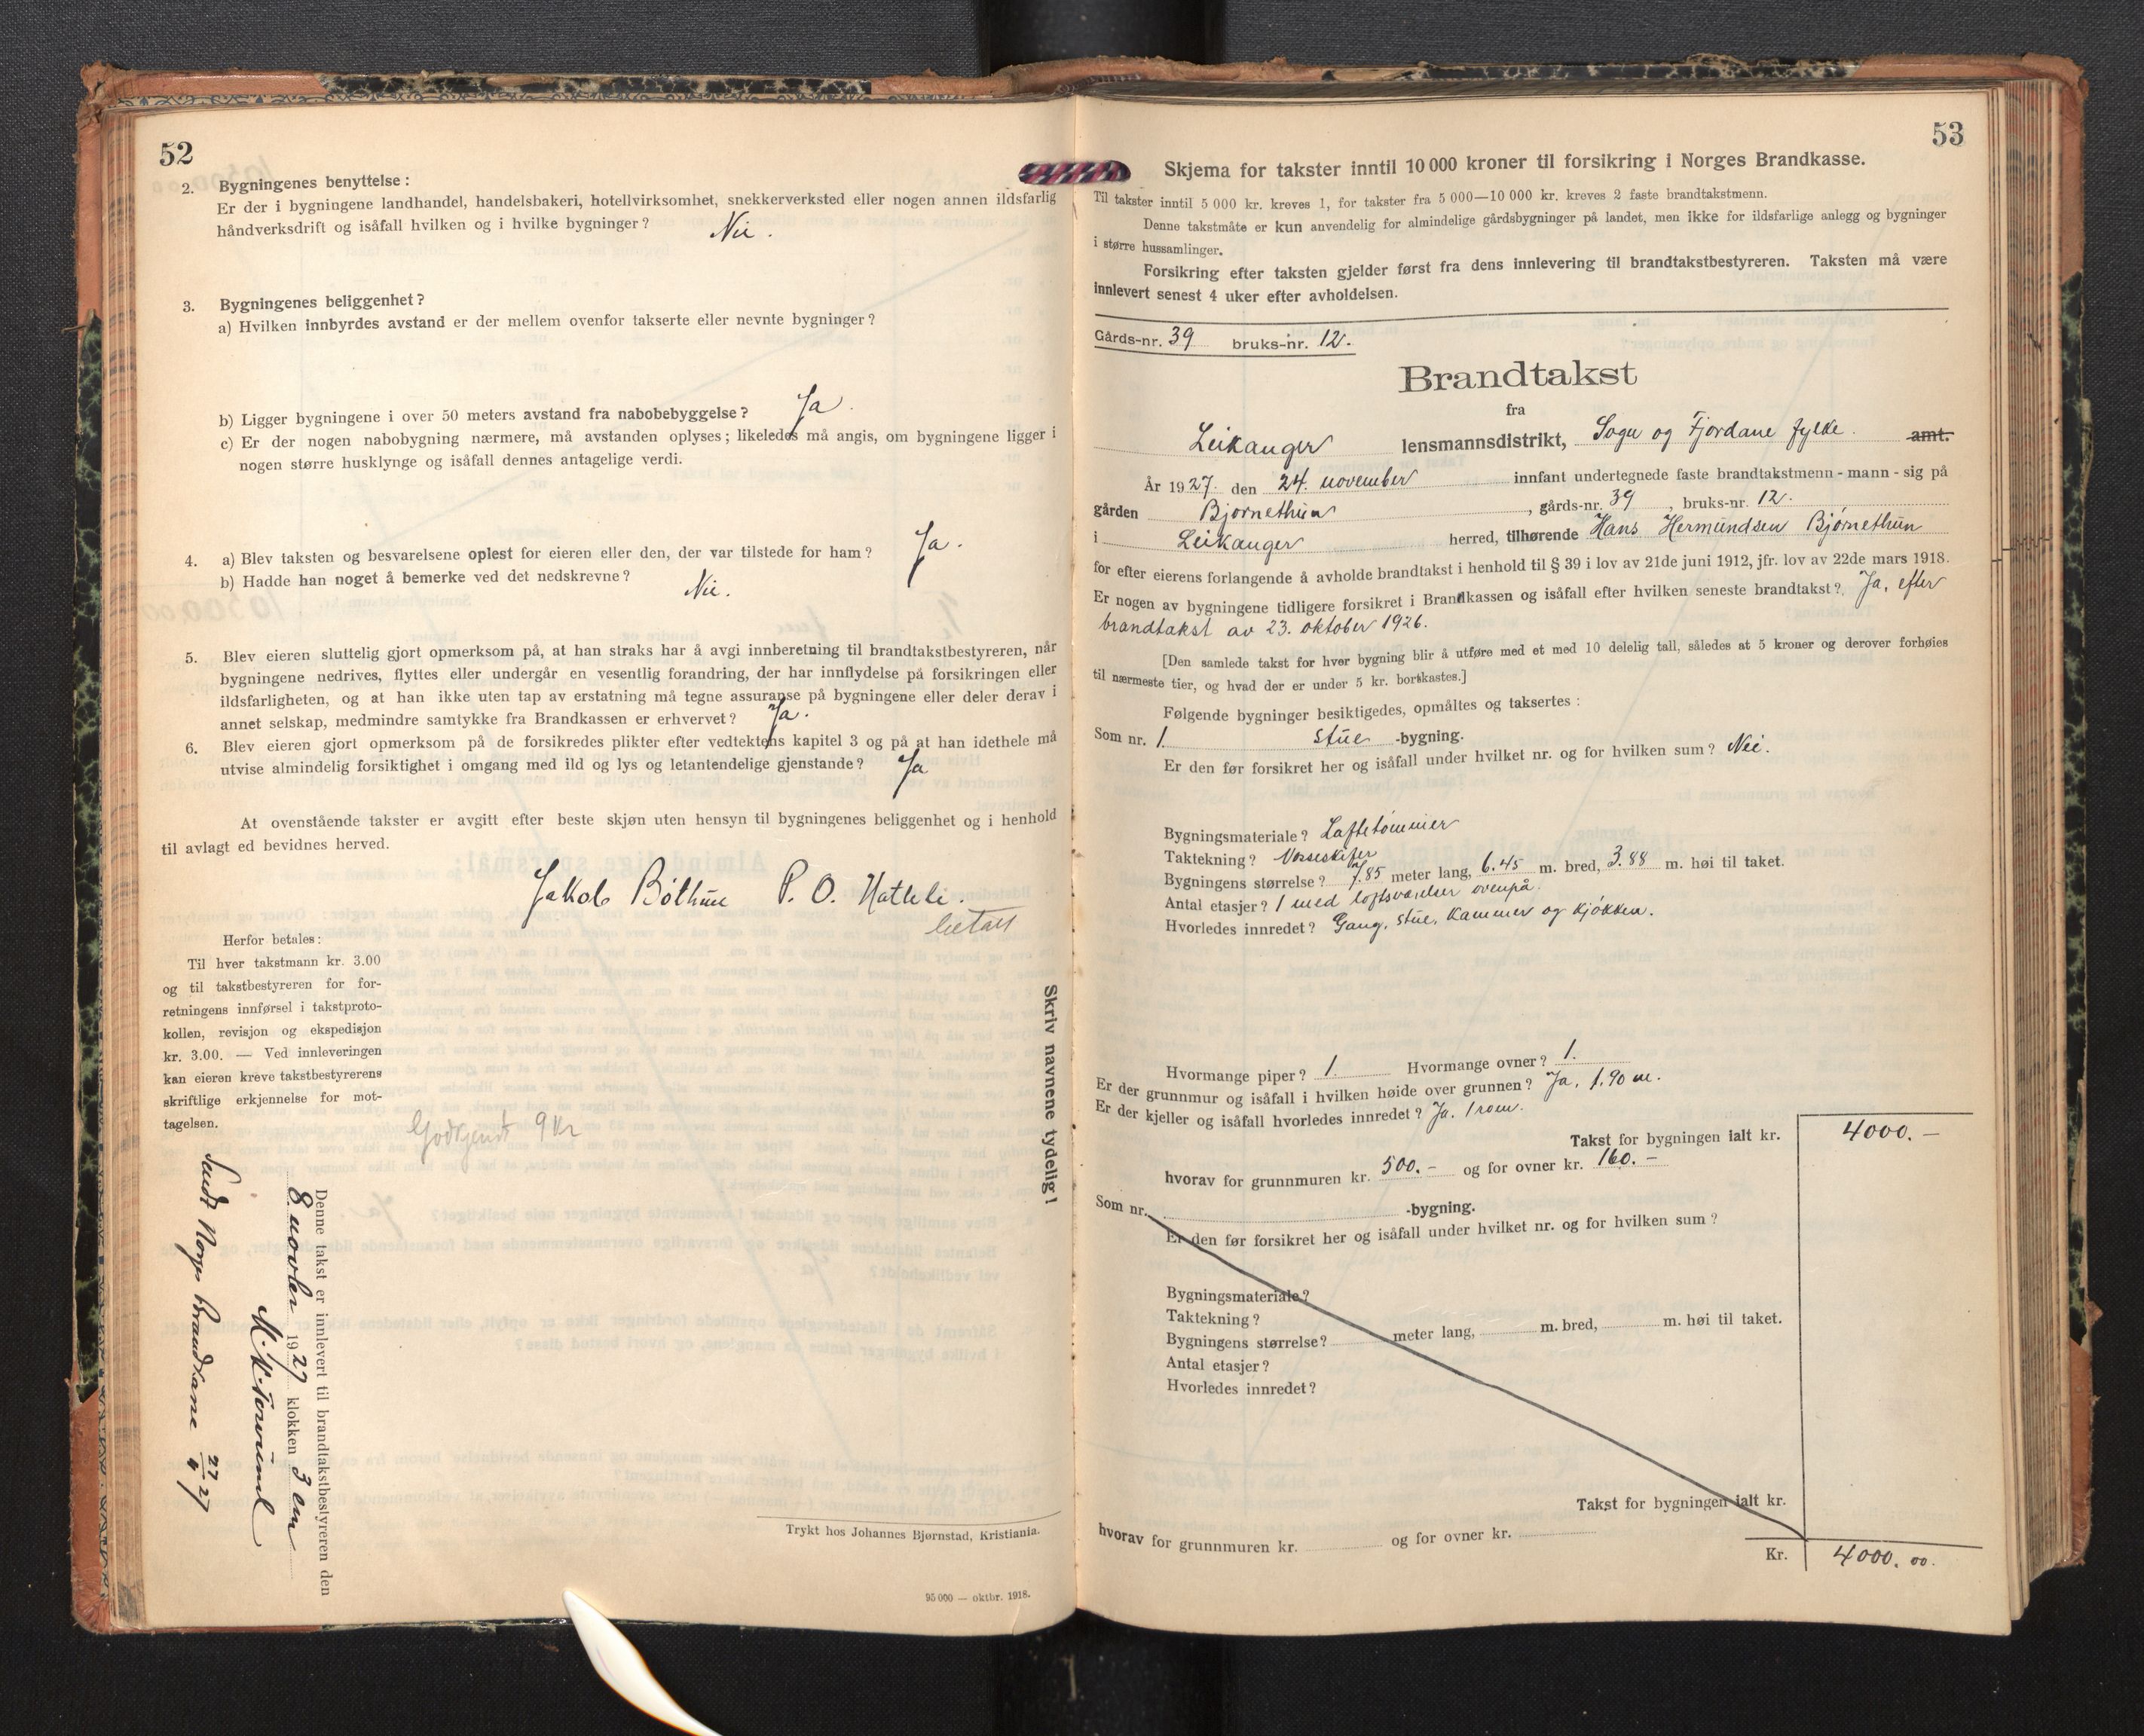 52
2. Bygningenes benyttelse:
Er der i bygningene landhandel, handelsbakeri, hotellvirksomhet, snekkerverksted eller nogen annen ildsfarlig
håndverksdrift og isåfall hvilken og i hvilke bygninger? Nei.
3. Bygningenes beliggenhet?
a) Hvilken innbyrdes avstand er der mellem ovenfor takserte eller nevnte bygninger?
b) Ligger bygningene i over 50 meters avstand fra nabobebyggelse? Ja.
c) Er der nogen nabobygning nærmere, må avstanden oplyses; likeledes må angis, om bygningene ligger i
nogen større husklynge og isåfall dennes antagelige verdi.
4. a) Blev taksten og besvarelsene oplest for eieren eller den, der var tilstede for ham? Ja.
b) Hadde han noget å bemerke ved det nedskrevne? Nei.
5. Blev eieren sluttelig gjort opmerksom på, at han straks har å avgi innberetning til brandtakstbestyreren, når
bygningene nedrives, flyttes eller undergår en vesentlig forandring, der har innflydelse på forsikringen eller
ildsfarligheten, og at han ikke uten tap av erstatning må tegne assuranse på bygningene eller deler derav i
annet selskap, medmindre samtykke fra Brandkassen er erhvervet? Ja.
6. Blev eieren gjort opmerksom på de forsikredes plikter efter vedtektens kapitel 3 og på at han idethele må
utvise almindelig forsiktighet i omgang med ild og lys og letantendelige gjenstande? Ja
At ovenstående takster er avgitt efter beste skjøn uten hensyn til bygningenes beliggenhet og i henhold
til avlagt ed bevidnes herved.
Jakob Bøthun P. O. Hatleli.
betalt
Herfor betales:
Til hver takstmann kr. 3.00
og til takstbestyreren for for-
retningens innførsel i takstproto-
kollen, revisjon og ekspedisjon
kr. 3.00. — Ved innleveringen
kan eieren kreve takstbestyrerens
skriftlige erkjennelse for mot-
tagelsen.
Godkjendt 9 Kr
Skriv navnene tydelig!
Denne takst er innlevert til brandtakstbestyreren den
8 novbr 1927 klokken 3 em
Sendt Norges Brandkasse 27
Trykt hos Johannes Bjørnstad, Kristiania.
95 000 — oktbr. 1918.
53
Skjema for takster inntil 10 000 kroner til forsikring i Norges Brandkasse.
Til takster inntil 5 000 kr. kreves 1, for takster fra 5 000—10 000 kr. kreves 2 faste brandtakstmenn.
Denne takstmåte er kun anvendelig for almindelige gårdsbygninger på landet, men ikke for ildsfarlige anlegg og bygninger
i større hussamlinger.
Forsikring efter taksten gjelder først fra dens innlevering til brandtakstbestyreren. Taksten må være
innlevert senest 4 uker efter avholdelsen.
Gårds-nr. 39 bruks-nr. 12.
Brandtakst
fra
Leikanger lensmannsdistrikt, Sogn og Fjordane fylke. amt.
År 1927. den 24. november innfant undertegnede faste brandtakstmenn - mann - sig på
gården Bjørnethun, gårds-nr. 39, bruks-nr. 12.
i Leikanger herred, tilhørende Hans Hermundsen Bjørnethun
for efter eierens forlangende å avholde brandtakst i henhold til § 39 i lov av 21de juni 1912, jfr. lov av 22de mars 1918.
Er nogen av bygningene tidligere forsikret i Brandkassen og isåfall efter hvilken seneste brandtakst? Ja, efter
brandtakst av 23. oktober 1926.
[Den samlede takst for hver bygning blir å utføre med et med 10 delelig tall, således at 5 kroner og derover forhøies
til nærmeste tier, og hvad der er under 5 kr. bortkastes.]
Følgende bygninger besiktigedes, opmåltes og taksertes:
Som nr. 1. stue -bygning.
Er den før forsikret her og isåfall under hvilket nr. og for hvilken sum? Nei.
Bygningsmateriale? Laftetømmer
Taktekning? Vosseskifer
Bygningens størrelse? 7.85 meter lang, 6.45 m. bred, 3.88 m. høi til taket.
Antal etasjer? 1 med loftsværelser ovenpå.
Hvorledes innredet? Gang, stue, kammer og kjøkken.
Hvormange piper? 1. Hvormange ovner? 1.
Er der grunnmur og isåfall i hvilken høide over grunnen? Ja, 1.90 m.
Er der kjeller og isåfall hvorledes innredet? Ja. 1 rom.
Takst for bygningen ialt kr. 4000.—
hvorav for grunnmuren kr. 500.— og for ovner kr. 160.—
Som nr. -bygning.
Er den før forsikret her og isåfall under hvilket nr. og for hvilken sum?
Bygningsmateriale?
Taktekning?
Bygningens størrelse? meter lang, m. bred, m. høi til taket.
Antal etasjer?
Hvorledes innredet?
Takst for bygningen ialt kr.
hvorav for grunnmuren kr. og for ovner kr.
Kr. 4000.00.